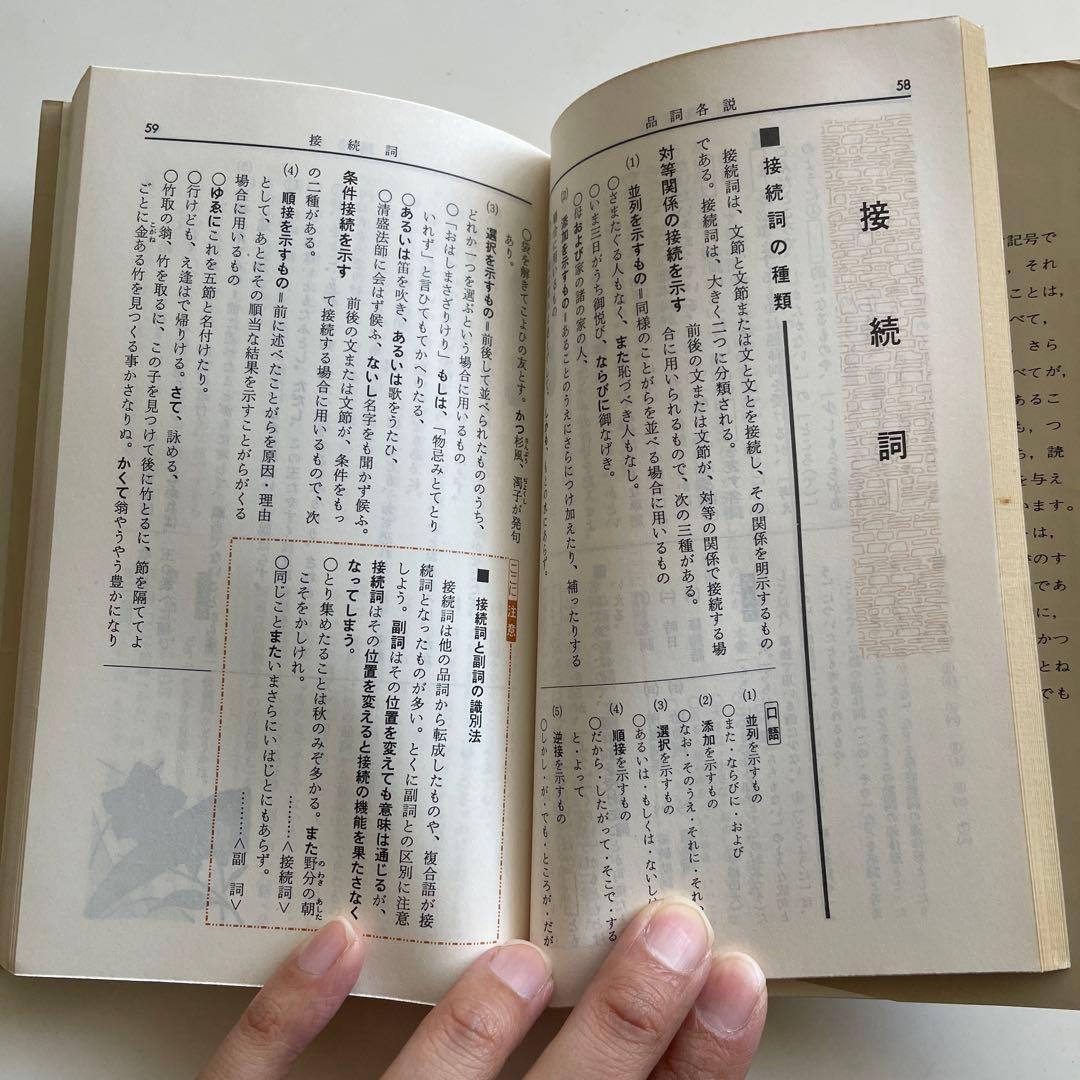 58
品詞各説
接続詞
■ 接続詞の種類
接続詞は、文節と文節または文と文とを接続し、その関係を明示するもの
である。接続詞は、大きく二つに分類される。
対等関係の接続を示す
前後の文または文節が、対等の関係で接続する場
合に用いられるもので、次の三種がある。
(1) 並列を示すもの=同様のことがらを並べる場合に用いるもの
○さまたぐる人もなく、また恥づべき人もなし。
○いま三日がうち御悦び、ならびに御なげき。
○母および家の諸の家の人、
(2) 添加を示すもの=あることのうえにさらにつけ加えたり、補ったりする
口語
(1) 並列を示すもの
○また・ならびに・および
(2) 添加を示すもの
○なお・そのうえ・それに・それ
(3) 選択を示すもの
○あるいは・もしくは・ないし
(4) 順接を示すもの
○だから・したがって・そこで・する
と・よって
(5) 逆接を示すもの
○しかし・が・でも・ところが・だが
59
接続詞
○袋を解きてこよひの友とす。かつ杉風、濁子が発句
あり。
(3) 選択を示すもの=前後して並べられたもののうち、
どれか一つを選ぶという場合に用いるもの
○「おはしまさざりけり」もしは、「物忌みとてとり
いれず」と言ひてもてかへりたる、
○あるいは笛を吹き、あるいは歌をうたひ、
○清盛法師に会はず候ふ、ないし名字をも聞かず候ふ。
条件接続を示す
前後の文または文節が、条件をもっ
て接続する場合に用いるもので、次
の二種がある。
(4) 順接を示すもの=前に述べたことがらを原因・理由
として、あとにその順当な結果を示すことがらがくる
場合に用いるもの
○ゆゑにこれを五節と名付けたり。
○行けども、え逢はで帰りける。さて、詠める、
○竹取の翁、竹を取るに、この子を見つけて後に竹とるに、節を隔ててよ
ごとに金ある竹を見つくる事かさなりぬ。かくて翁やうやう豊かになり
ここに注意
■ 接続詞と副詞の識別法
接続詞は他の品詞から転成したものや、複合語が接
続詞となったものが多い。とくに副詞との区別に注意
しよう。副詞はその位置を変えても意味は通じるが、
接続詞はその位置を変えると接続の機能を果たさなく
なってしまう。
○とり集めたることは秋のみぞ多かる。また野分の朝
こそをかしけれ。
………<接続詞>
○同じことまたいまさらにいはじとにもあらず。
………<副 詞>
記号で
、それ
ことは、
べて、
、さら
べてが、
あるこ
も、つ
ら、読
を与え
います。
ーは、
のす
であ
に、
かつ
とね
でも